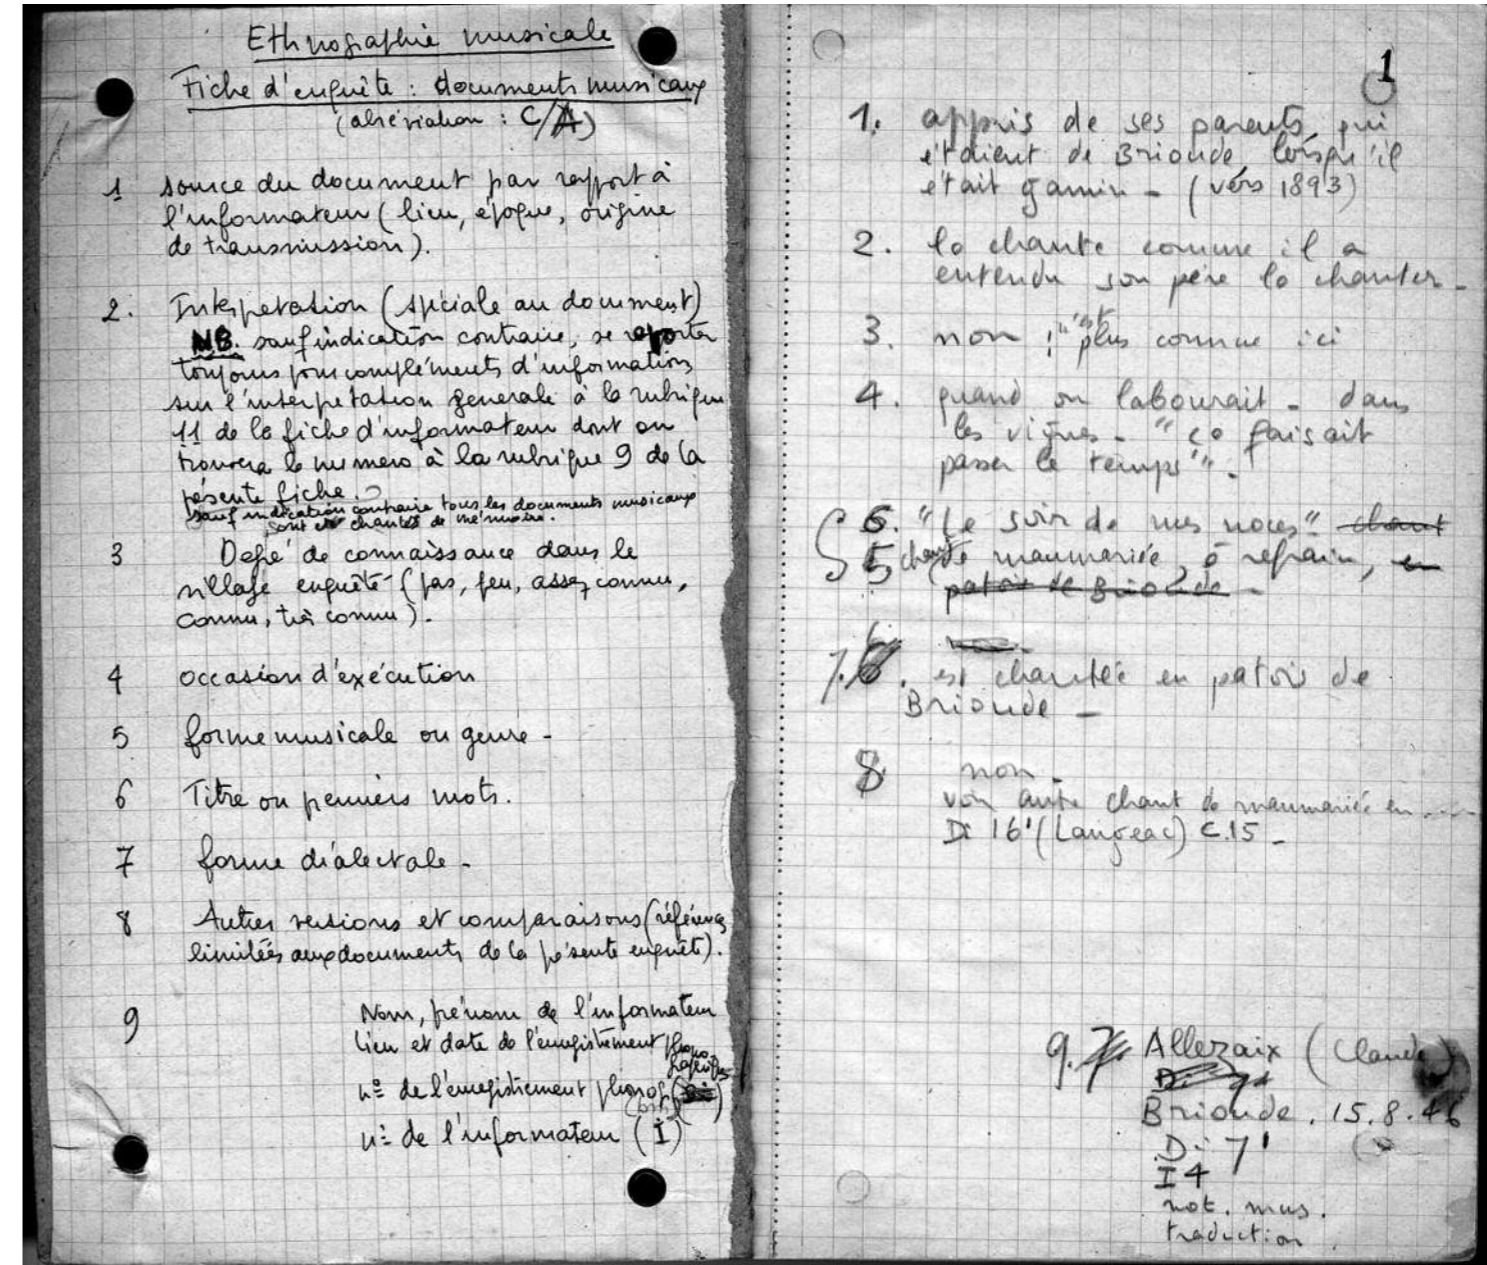 Ethnographie musicale
Fiche d'enquête : documents musicaux
(abréviation : C/A)
1 source du document par rapport à
l'informateur (lieu, époque, origine
de transmission).
2. Interpetation (spéciale au document)
NB. sauf indication contraire, se reporter
toujours pour compléments d'informations
sur l'interpetation generale à la rubrique
11 de la fiche d'informateur dont on
trouvera le numero à la rubrique 9 de la
présente fiche.
sauf indication contraire tous les documents musicaux
sont chantés de mémoire.
3 Degré de connaissance dans le
village enquêté (pas, peu, assez connu,
connu, très connu).
4 occasion d'exécution
5 forme musicale ou genre -
6 Titre ou premiers mots.
7 forme dialectale -
8 Autres versions et comparaisons (références
limitées aux documents de la présente enquête).
9 Nom, prénom de l'informateur
lieu et date de l'enregistrement phono
graphique
nº de l'enregistrement phonog (Di)
nº de l'informateur (I)
1
1. appris de ses parents, qui
étaient de Brioude, lorsqu'il
était gamin - (vers 1893)
2. la chante comme il a
entendu son père la chanter -
3. non ; "est plus connue ici
4. quand on labourait - dans
les vignes - "ça faisait
passer le temps".
6. "Le soir de mes noces" chant
5 chant de maumariée, à refrain, en
patois de Brioude -
7. est chantée en patois de
Brioude -
8 non -
voir autre chant de maumariée en ....
Di 16' (Langeac) C.15 -
9. Allezaix (Claude)
Brioude . 15.8.46
Di 7'
I 4
not. mus.
traduction